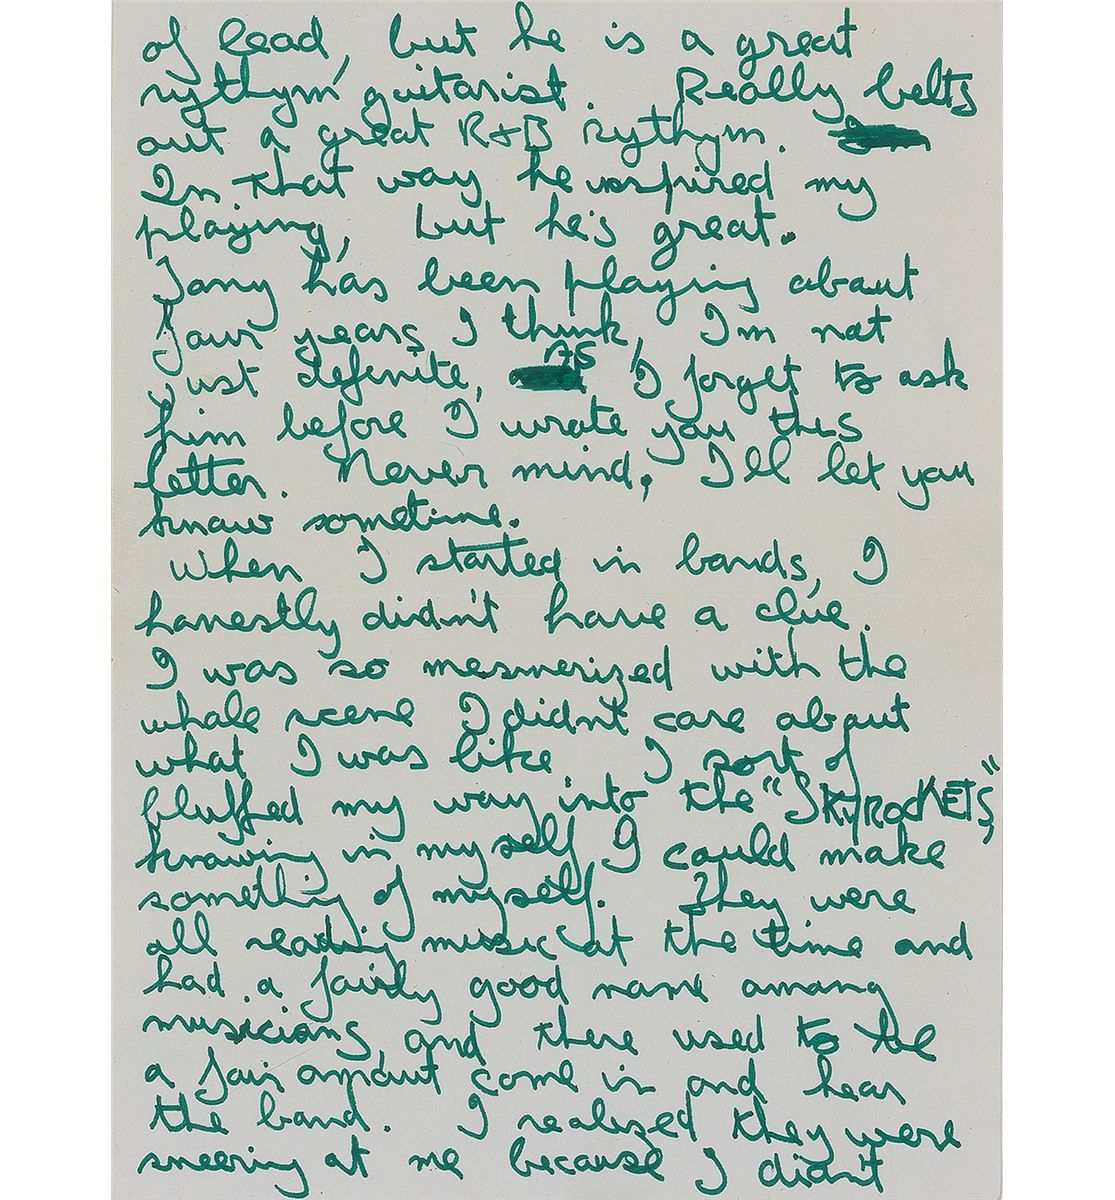 of lead, but he is a great
rythym guitarist. Really belts
out a great R+B rythym.
In that way he inspired my
playing, but he's great.
Tony has been playing about
four years I think, I'm not
just definite, AS I forget to ask
him before I wrote you this
letter. Never mind, I'll let you
know sometime.
When I started in bands, I
honestly didn't have a clue.
I was so mesmerized with the
whole scene I didn't care about
what I was like. I sort of
bluffed my way into the "SKYROCKETS,"
knowing in myself I could make
something of myself. They were
all reading music at the time and
had a fairly good name among
musicians, and there used to be
a fair amount come in and hear
the band. I realized they were
sneering at me because I didn't